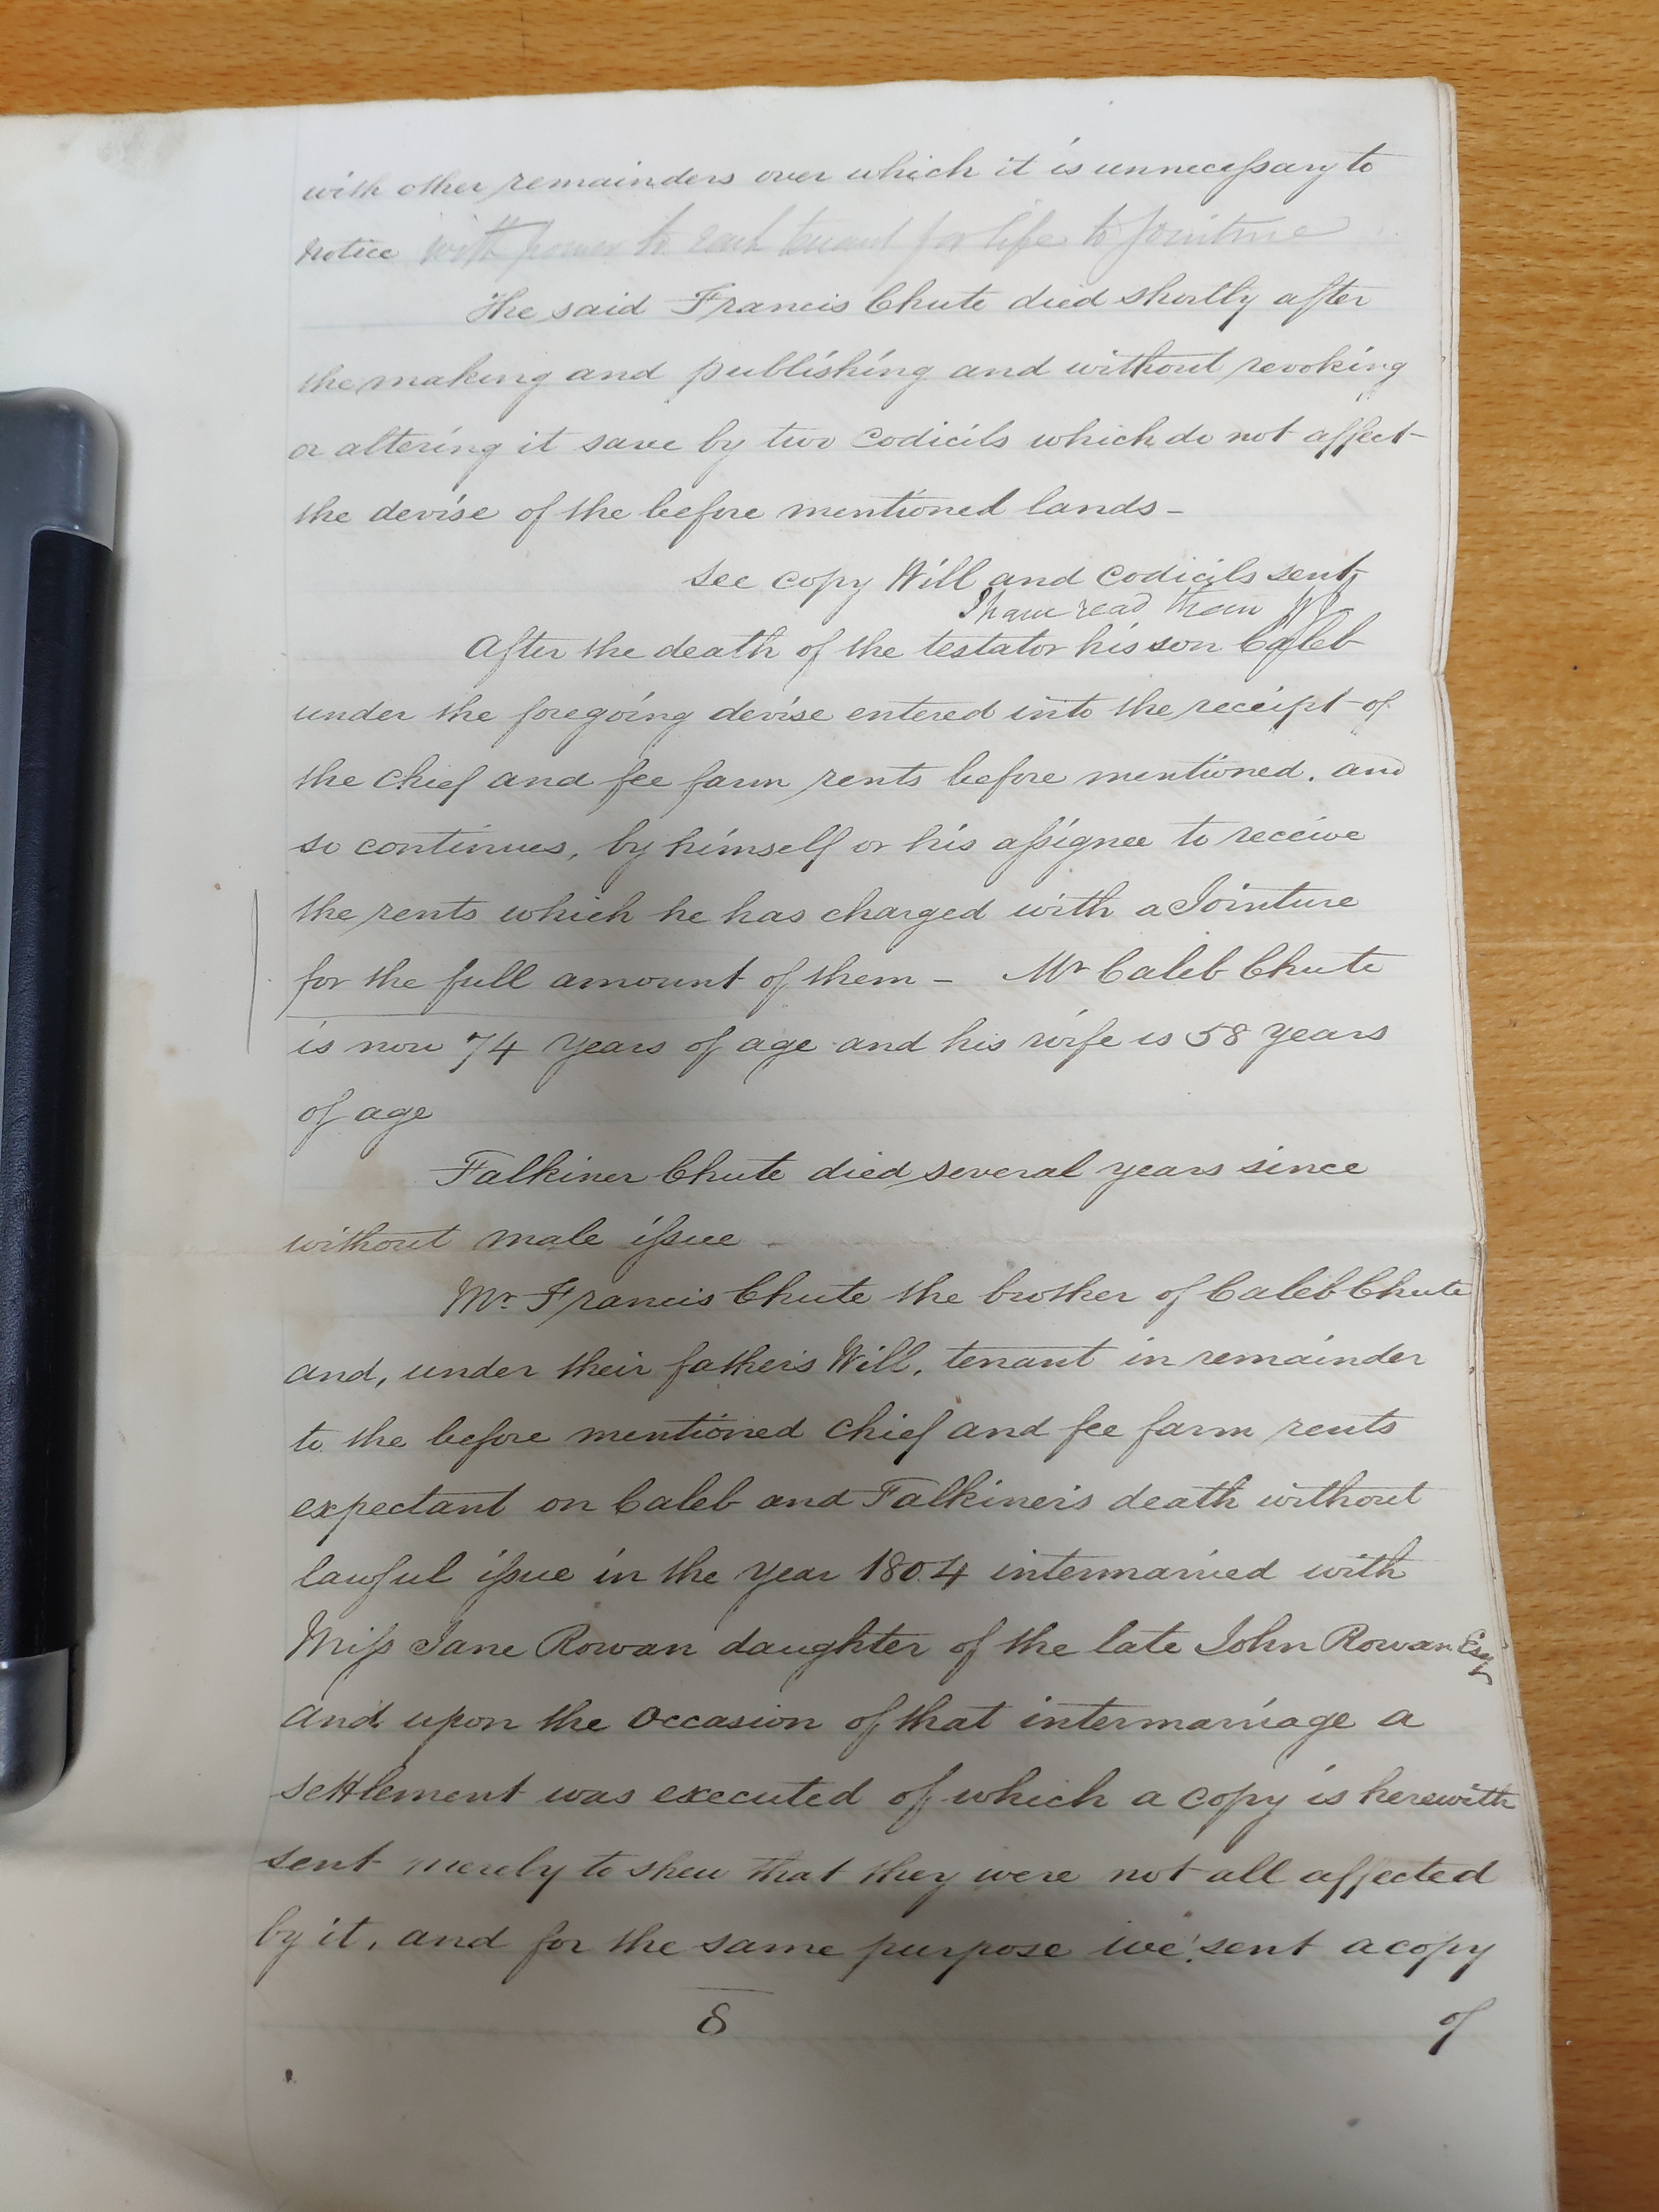 with other remainders over which it is unnecessary to
notice with power to each tenant for life to jointure
The said Francis Chute died shortly after
the making and publishing and without revoking
or altering it save by two Codicils which do not affect
the devise of the before mentioned lands –
See copy Will and Codicils sent
I have read them
After the death of the testator his son Caleb
under the foregoing devise entered into the receipt of
the Chief and fee farm rents before mentioned. and
so continues, by himself or his assignee to receive
the rents which he has charged with a Jointure
for the full amount of them – Mr Caleb Chute
is now 74 years of age and his wife is 58 years
of age
Falkiner Chute died several years since
without male issue
Mr Francis Chute the brother of Caleb Chute
and, under their father's Will, tenant in remainder
to the before mentioned Chief and fee farm rents
expectant on Caleb and Falkiner's death without
lawful issue in the year 1804 intermarried with
Miss Jane Rowan daughter of the late John Rowan Esq
and upon the Occasion of that intermarriage a
settlement was executed of which a copy is herewith
sent merely to shew that they were not all affected
by it, and for the same purpose we sent a copy
8 of